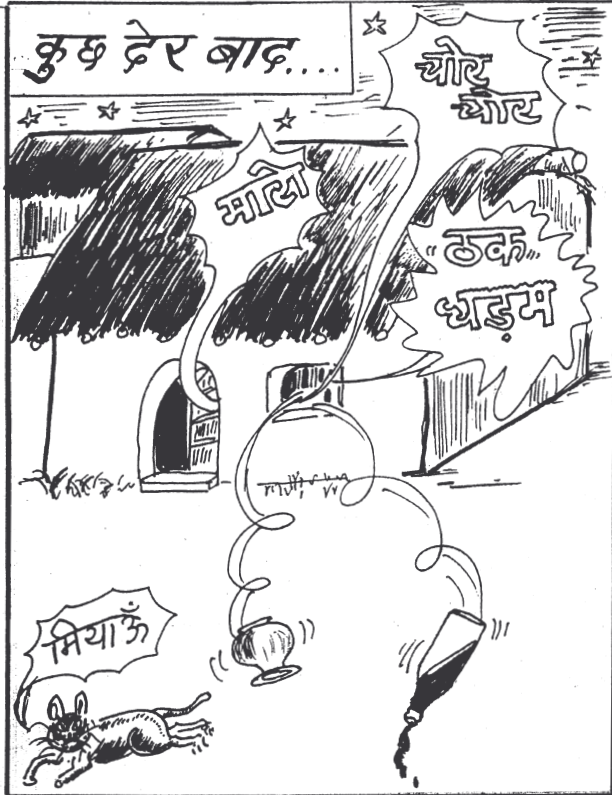 कुछ देर बाद....
चोर
चोर
मारो
"ठक"
धड़म
मियाऊँ